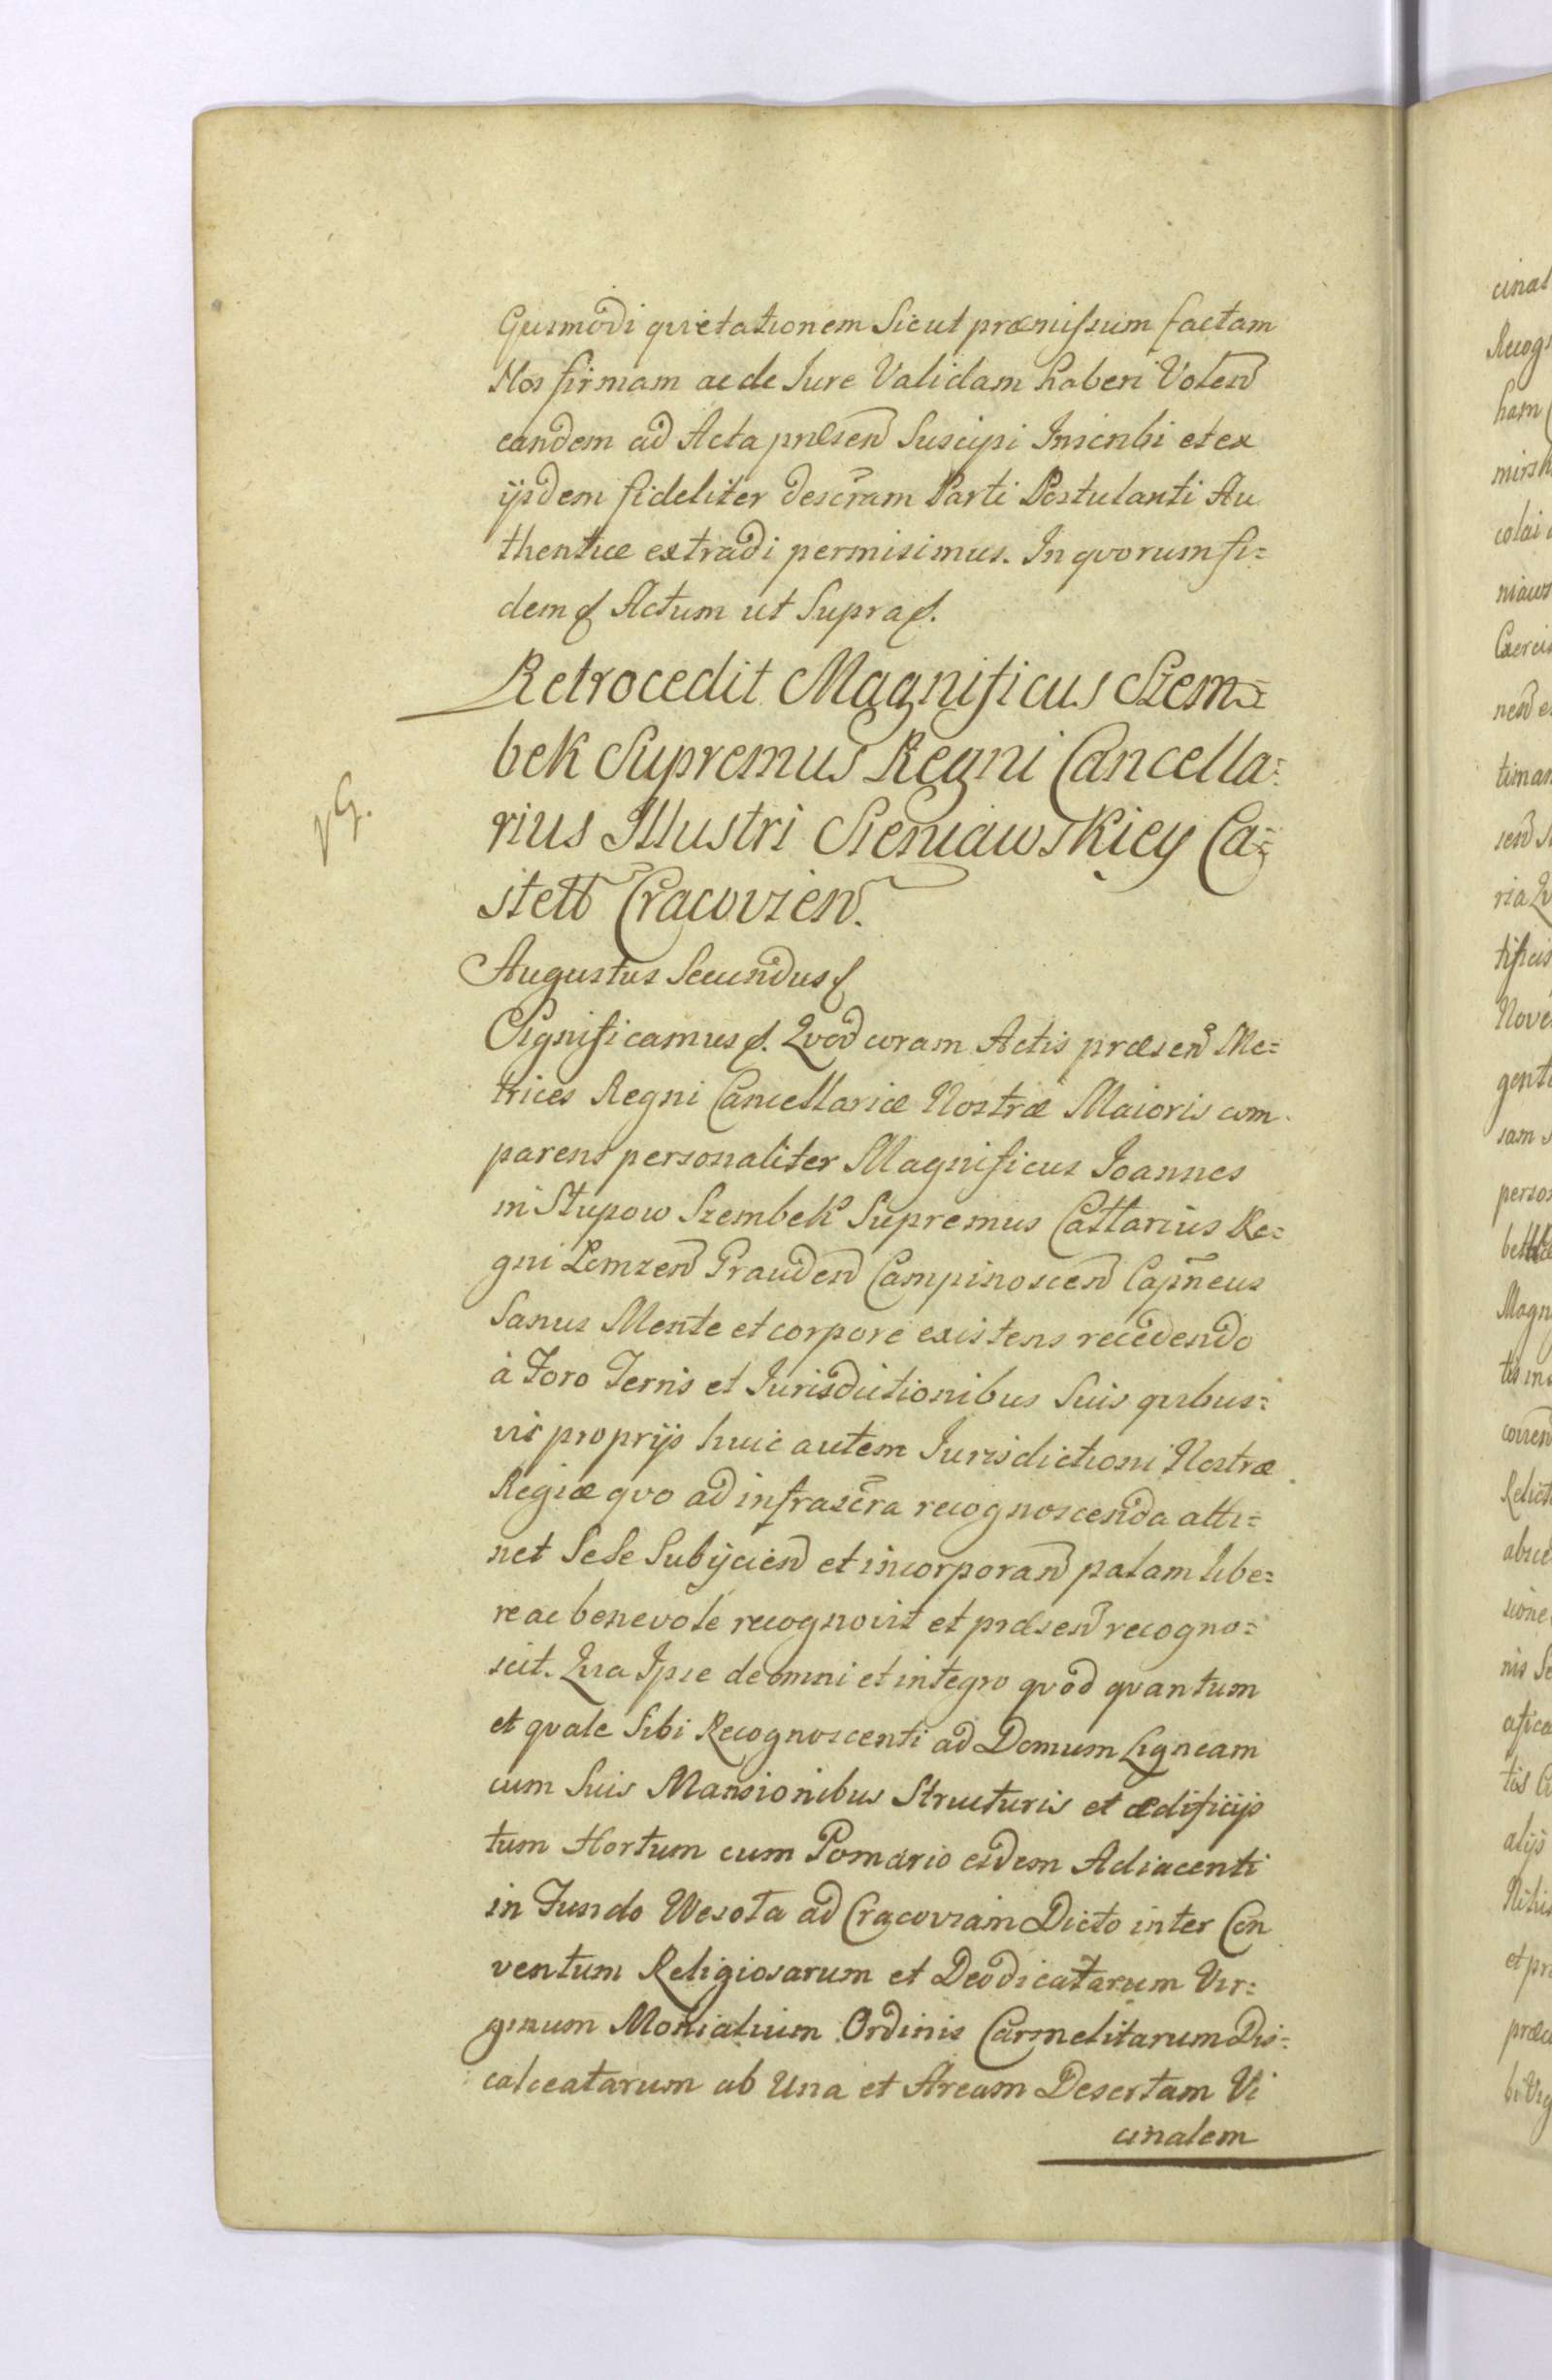 Gusmodi quietationem Sicut præmissum factam
Nos firmam ac de Jure Validam haberi Volen
eandem ad Acta præsen Suscipi Inscribi et ex
ijsdem fideliter descram Parti Postulanti Au
thentice extradi permisimus. In quorum fi=
dem Actum ut Supra.
Retrocedit Magnificus Szem=
bek Supremus Regni Cancella=
rius Illustri Sieniawskiey Ca=
stell Cracovien.
Augustus Secundus
Significamus. Quod coram Actis præsen Me=
trices Regni Cancellariæ Nostræ Maioris com
parens personaliter Magnificus Joannes
in Słupow Szembek Supremus Callarius Re=
gni Lomzen Grauden Campinoscen Capneus
Sanus Mente et corpore existens recedendo
à Foro Terris et Jurisdictionibus Suis quibus=
vis proprijs huic autem Jurisdictioni Nostræ
Regiæ quo ad infrascra recognoscenda atti=
net Sese Subijcien et incorporan palam libe=
re ac benevole recognovit et præsen recogno=
scit. Quia Ipse de omni et integro quod quantum
et quale Sibi Recognoscenti ad Domum Ligneam
cum Suis Mansionibus Structuris et ædificijs
tum Hortum cum Pomario eidem Adiacenti
in Fundo Wesoła ad Cracoviam Dicto inter Con
ventum Religiosarum et Deodicatarum Vir=
ginum Monialium Ordinis Carmelitarum Dis=
calceatarum ab Una et Aream Desertam Vi
cinalem